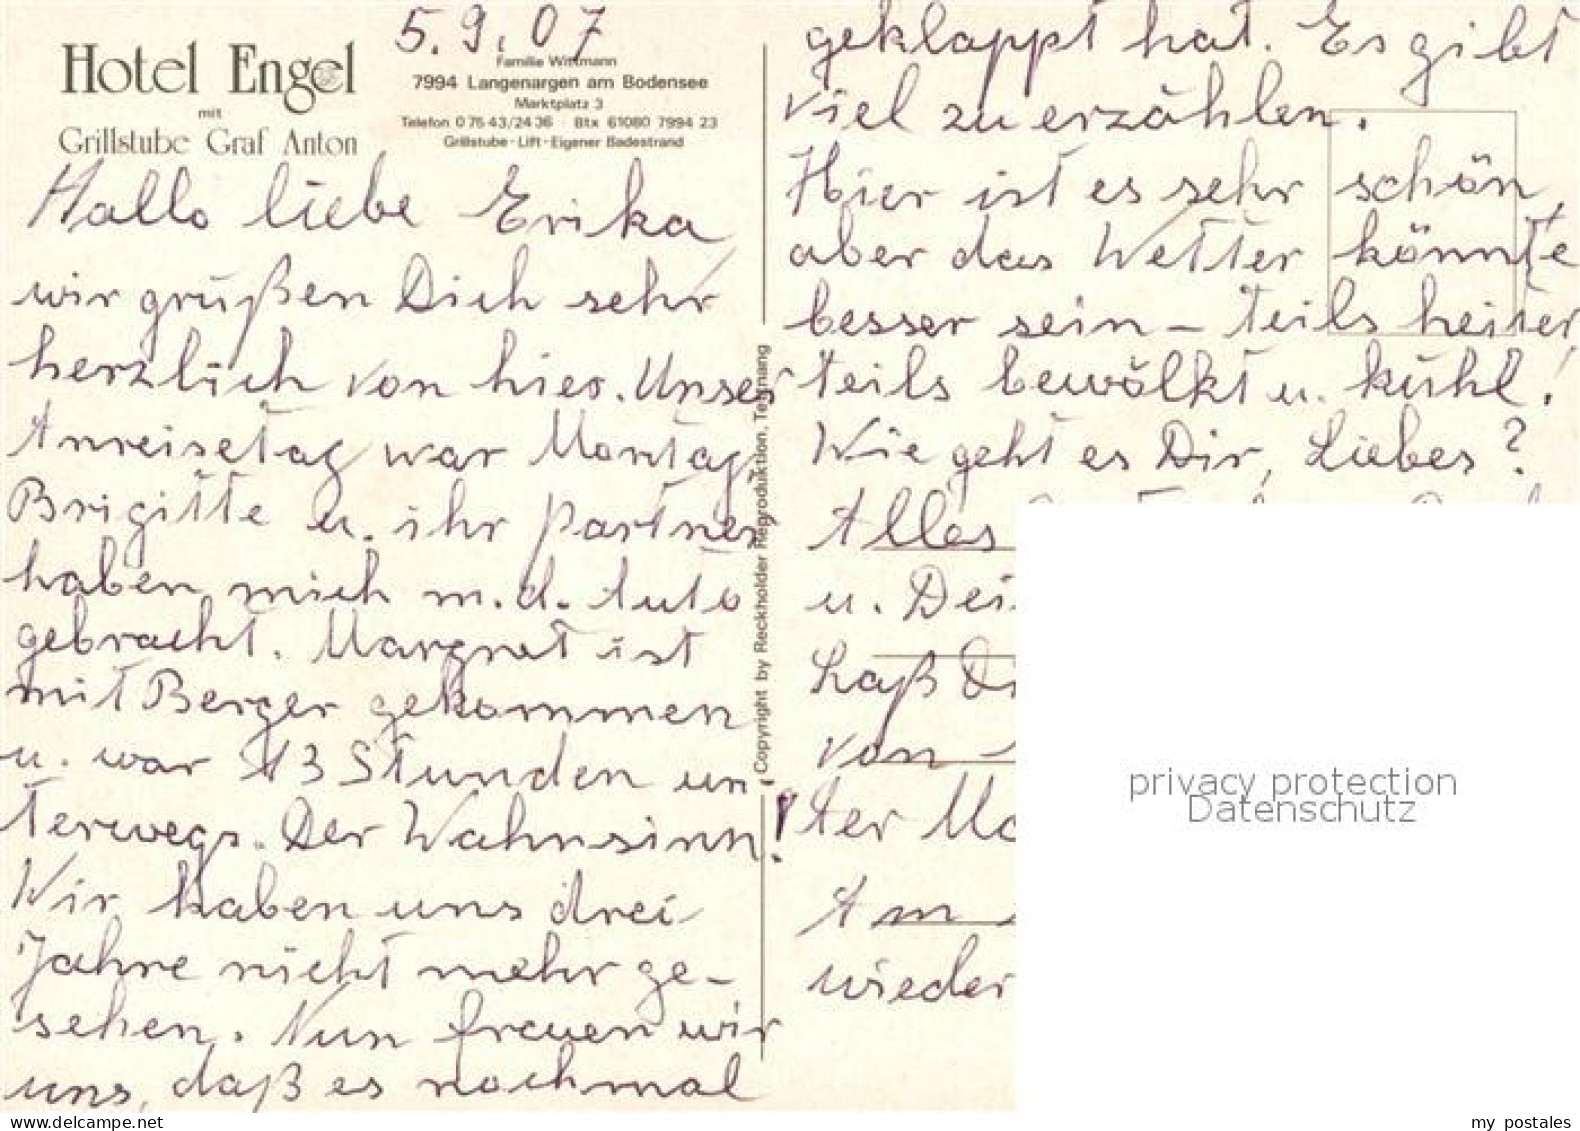 5.9.07
Hotel Engel
mit
Grillstube Graf Anton
Familie Wittmann
7994 Langenargen am Bodensee
Marktplatz 3
Telefon 0 75 43/24 36 · Btx 61080 7994 23
Grillstube - Lift - Eigener Badestrand
Hallo liebe Erika
wir grüßen Dich sehr
herzlich von hier. Unser
Anreisetag war Montag
Brigitte u. ihr Partner
haben mich m. d. Auto
gebracht. Margret ist
mit Berger gekommen
u. war 13 Stunden un
terwegs. Der Wahnsinn!
Wir haben uns drei
Jahre nicht mehr ge-
sehen. Nun freuen wir
uns, daß es nochmal
Copyright by Reckholder Reproduktion, Tettnang
geklappt hat. Es gibt
viel zu erzählen.
Hier ist es sehr schön,
aber das Wetter könnte
besser sein - teils heiter,
teils bewölkt u. kühl!
Wie geht es Dir, Liebes?
Alles
u. Dei
Laß Di
von
ter Ma
Am
wieder
privacy protection
Datenschutz
www.delcampe.net
my_postales